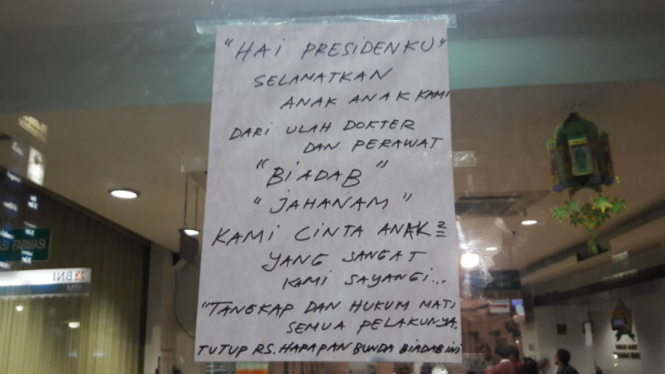 "HAI PRESIDENKU"
SELAMATKAN
ANAK ANAK KAMI
DARI ULAH DOKTER
DAN PERAWAT
"BIADAB"
"JAHANAM"
KAMI CINTA ANAK2
YANG SANGAT
KAMI SAYANGI...
"TANGKAP DAN HUKUM MATI
SEMUA PELAKUNYA.
TUTUP RS. HARAPAN BUNDA BIADAB INI
FARMASI
BNI